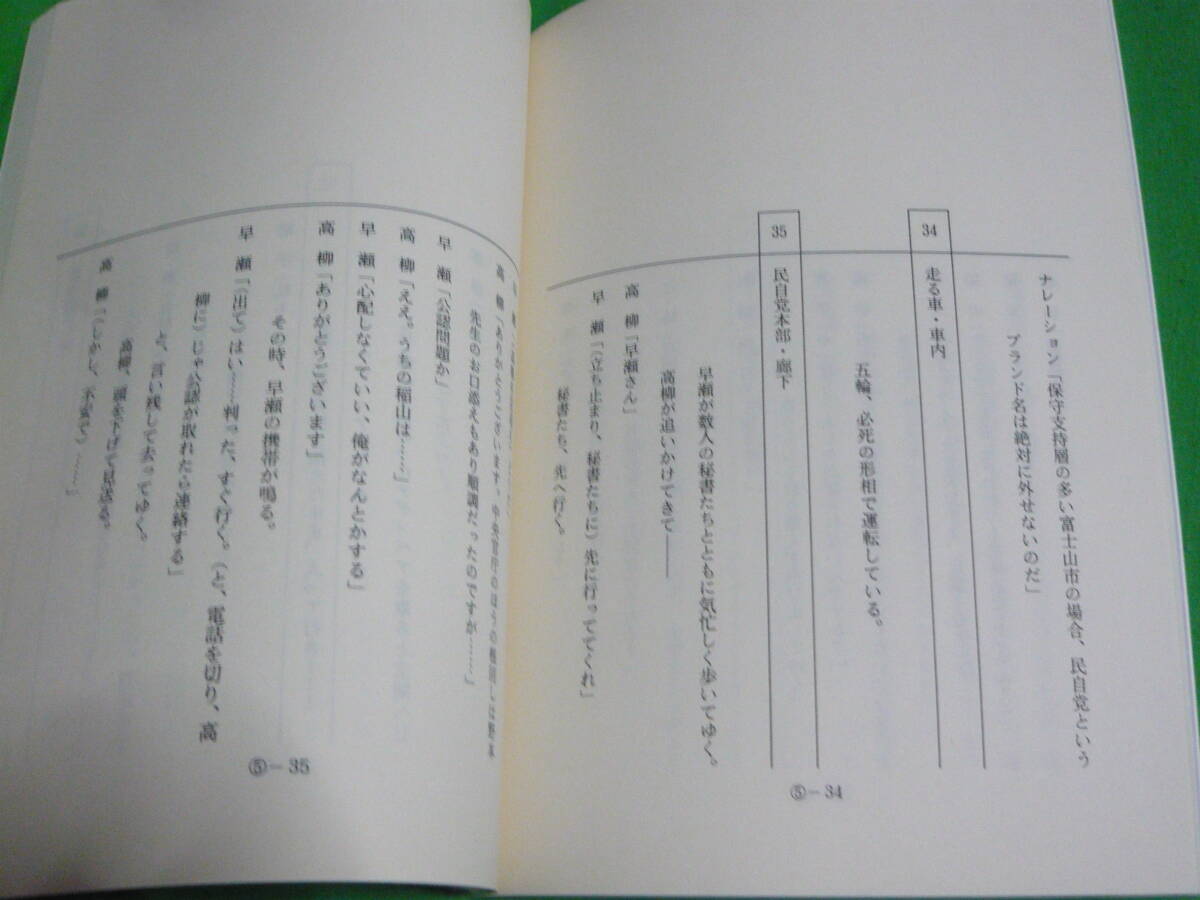 ナレーション「保守支持層の多い富士山市の場合、民自党という
ブランド名は絶対に外せないのだ」
34 走る車・車内
五輪、必死の形相で運転している。
35 民自党本部・廊下
早瀬が数人の秘書たちとともに気忙しく歩いてゆく。
高柳が追いかけてきて――
高　柳「早瀬さん」
早　瀬「(立ち止まり、秘書たちに)先に行っててくれ」
秘書たち、先へ行く。
⑤－34
高　柳「ありがとうございます。
先生のお口添えもあり順調だったのですが……」
早　瀬「公認問題か」
高　柳「ええ。うちの稲山は……」
早　瀬「心配しなくていい、俺がなんとかする」
高　柳「ありがとうございます」
その時、早瀬の携帯が鳴る。
早　瀬「(出て)はい……判った、すぐ行く。(と、電話を切り、高
柳に)じゃ公認が取れたら連絡する」
と、言い残して去ってゆく。
高柳、頭を下げて見送る。
高　柳「(しかし、不安で)……」
⑤－35